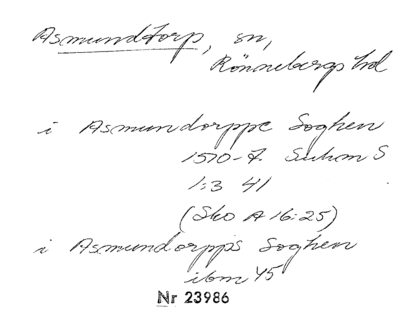 Asmundtorp, sn,
Rönnebergs hd
i Asmundorppe Soghen
1570-t. Suhm S
1:3 41
(Sko A 16:25)
i Asmundorpps Soghen
ibm 45
Nr 23986